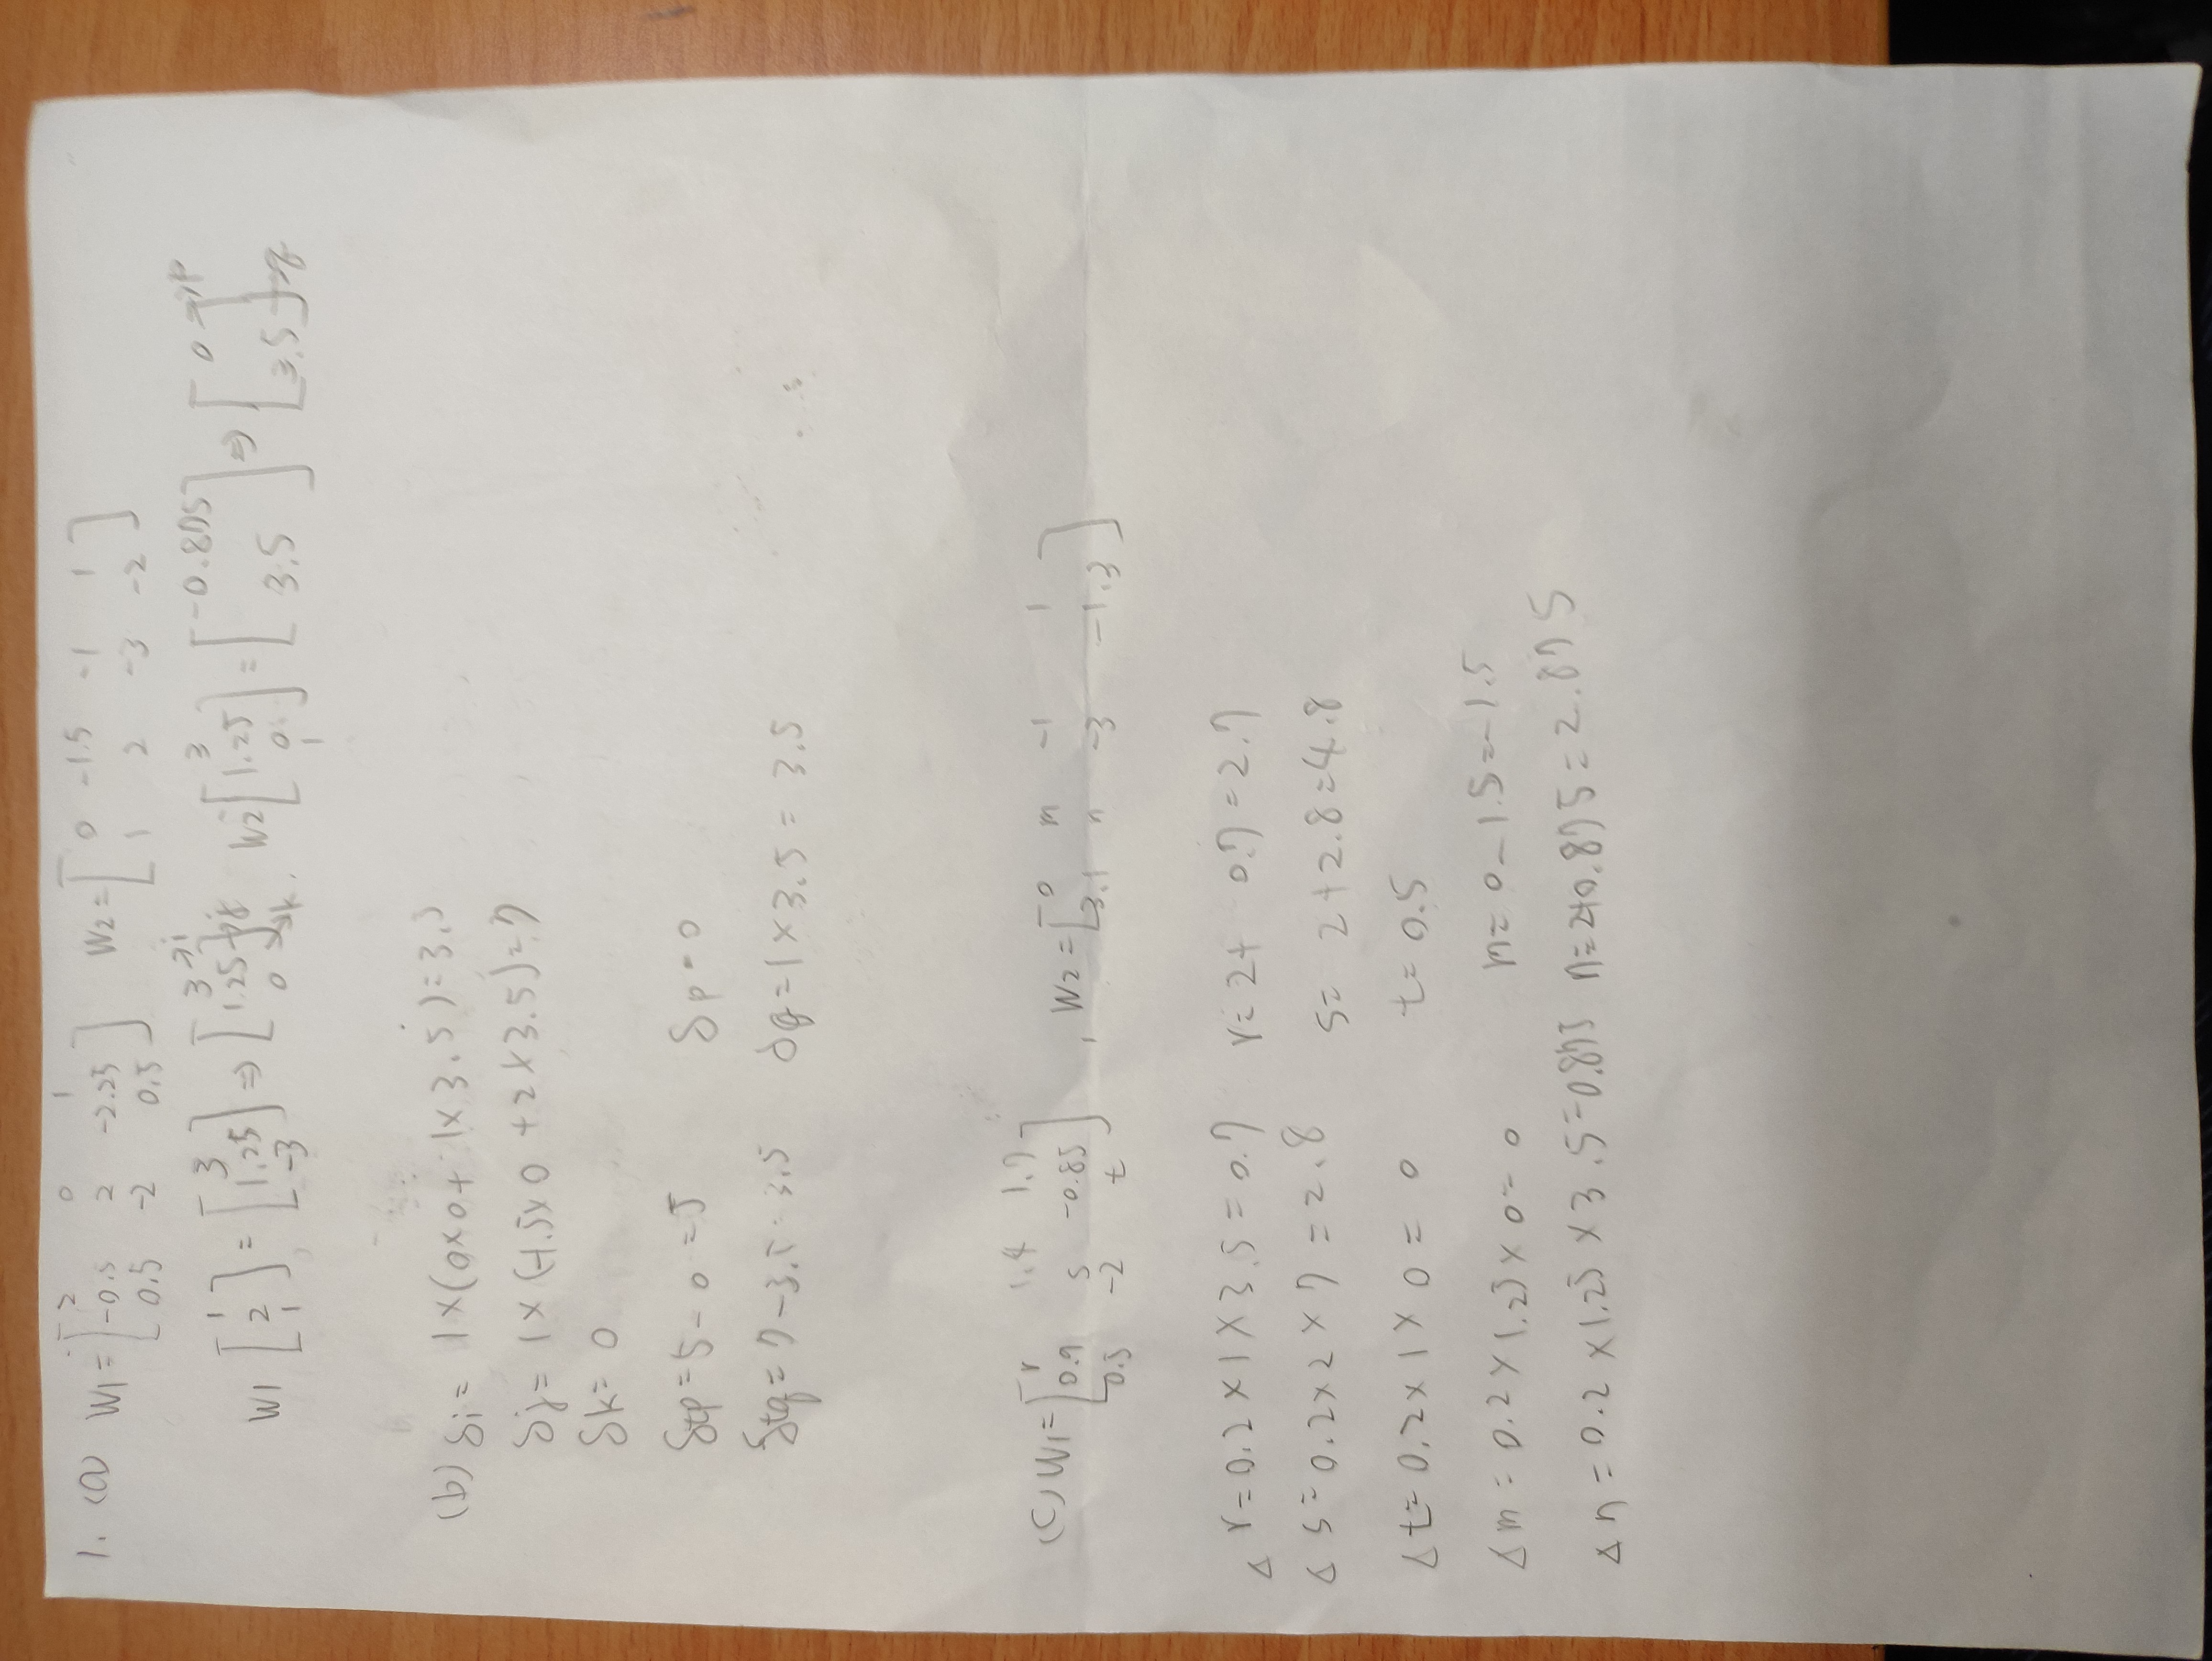 1. (a) W1 = [ 2 0 1
-0.5 2 -2.25
0.5 -2 0.5 ] W2 = [ 0 -1.5 -1 1
1 2 -3 -2 ]
W1 [ 1
2
1 ] = [ 3
1.25
-3 ] ⇒ [ 3 → i
1.25 → j
0 → k , W2 [ 3
1.25
0
1 ] = [ -0.875
3.5 ] ⇒ [ 0 → p
3.5 ] → q
(b) δi = 1×(0×0 + 1×3.5) = 3.5
δj = 1×(-1.5×0 + 2×3.5) = 7
δk = 0
δtp = 5 - 0 = 5 δp = 0
δtq = 7 - 3.5 = 3.5 δq = 1×3.5 = 3.5
(c) W1 = [ r 1.4 1.7
0.9 s -0.85
0.5 -2 t ] , W2 = [ 0 m -1 1
3.1 n -3 -1.3 ]
Δr = 0.2×1×3.5 = 0.7 r = 2+ 0.7 = 2.7
Δs = 0.2×2×7 = 2.8 s = 2+2.8 = 4.8
Δt = 0.2×1×0 = 0 t = 0.5
Δm = 0.2×1.25×0 = 0 m = 0-1.5 = -1.5
Δn = 0.2×1.25×3.5 = 0.875 n = 2+0.875 = 2.875